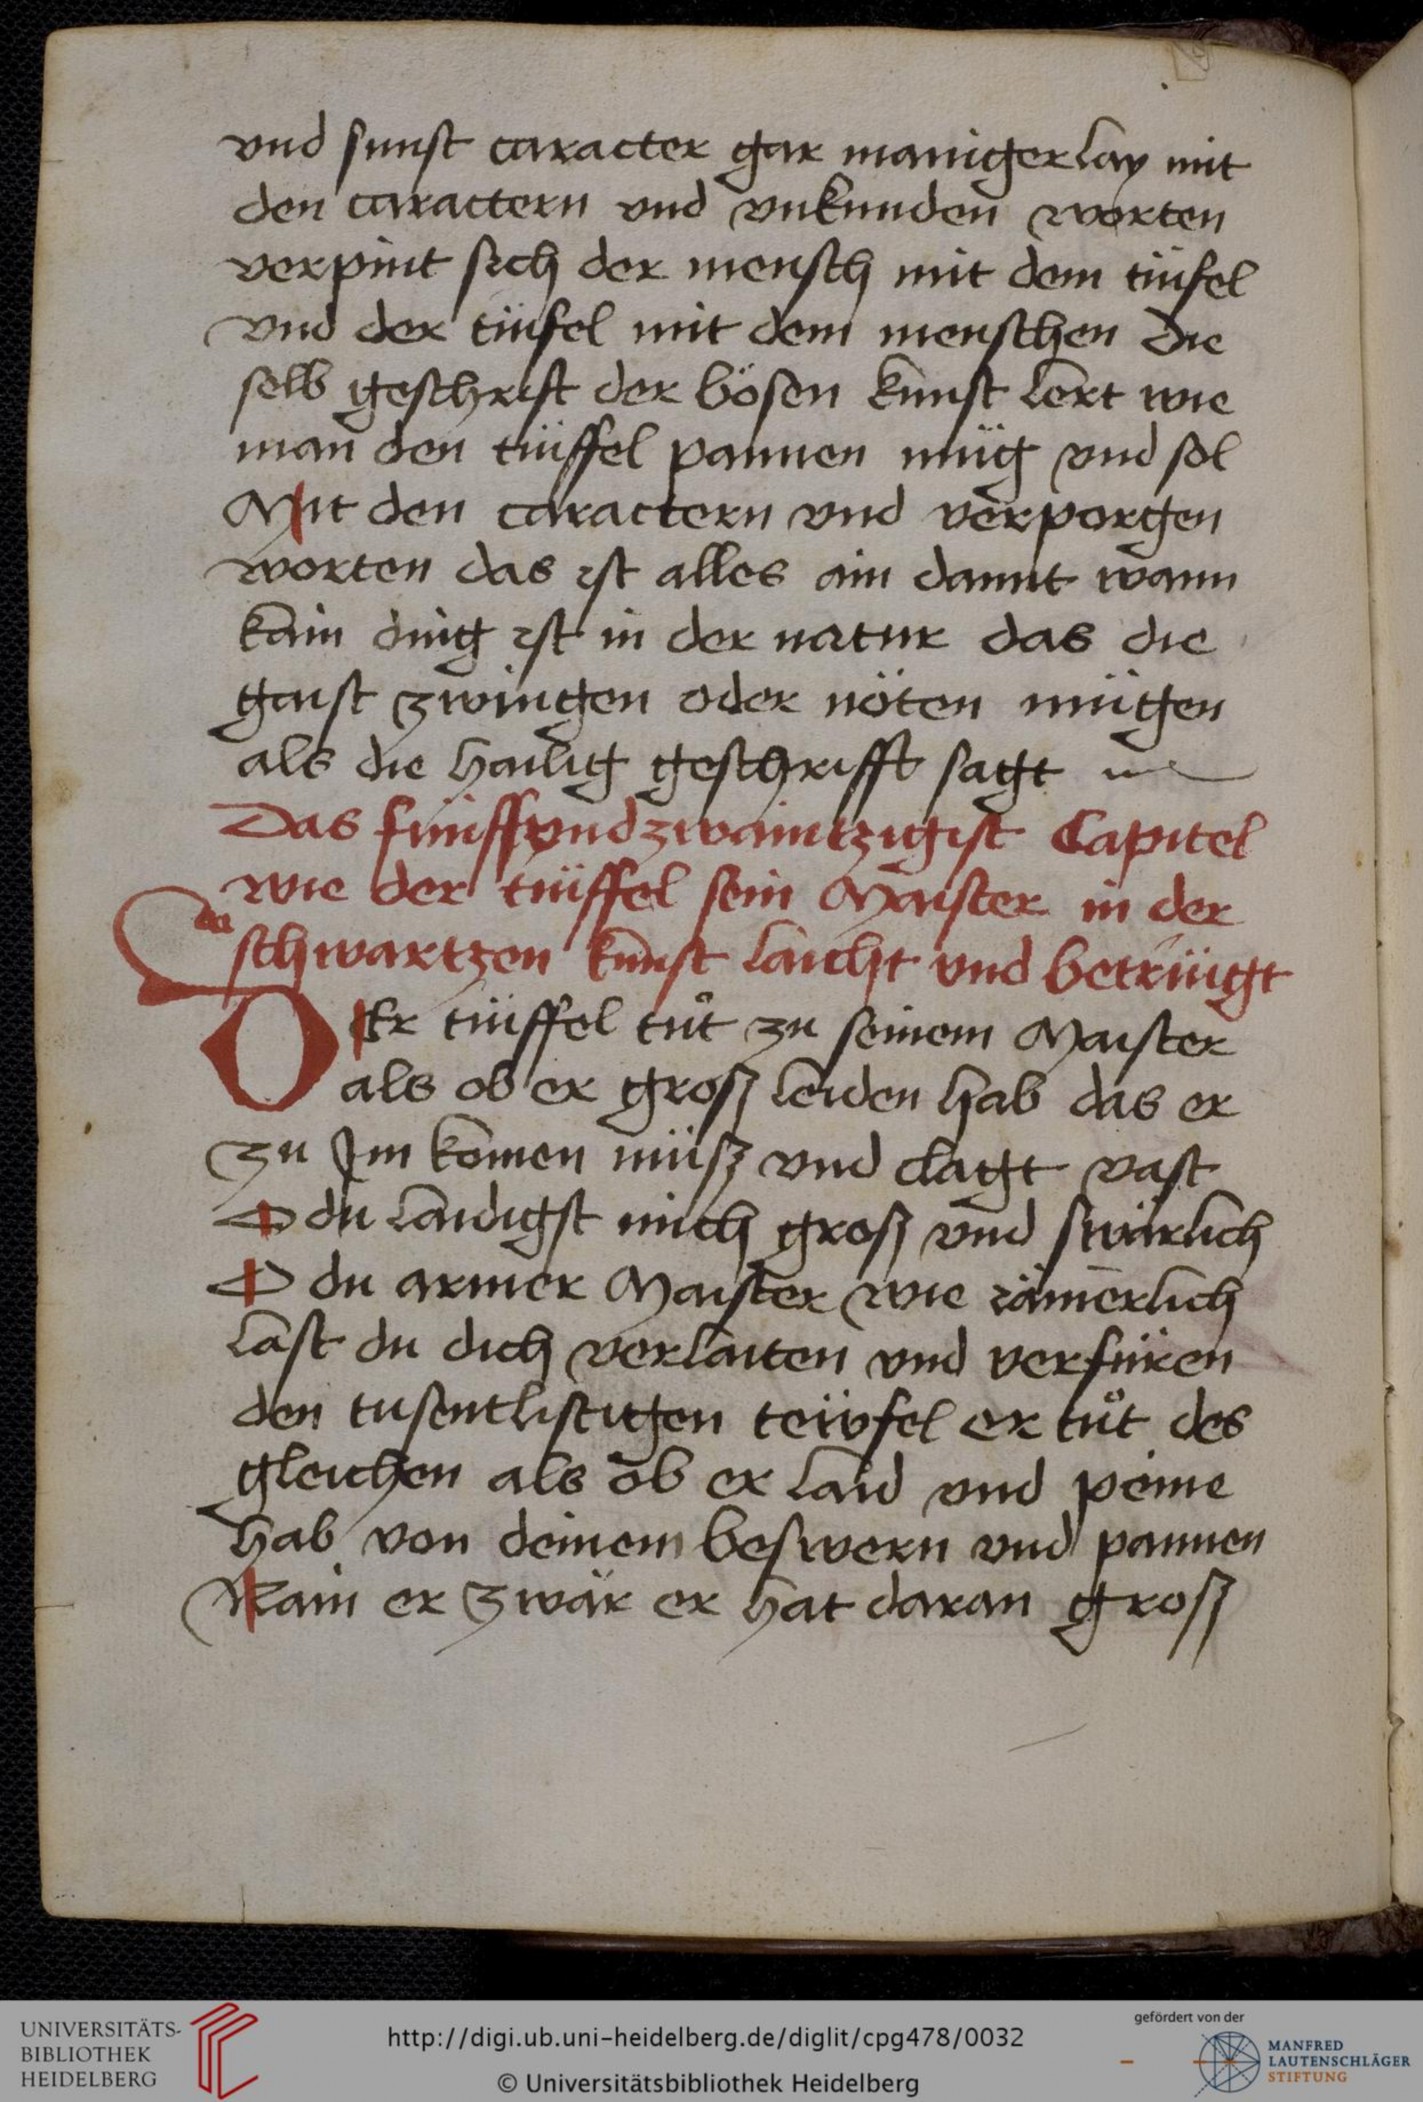 vnd sunst caracter gar manigerlay mit
den caractern vnd vnkunden worten
verpint sich der mensch mit dem tiüfel
vnd der tiüfel mit dem menschen Die
selb geschrift der bösen kunst lert wie
man den tiüffel pannen müg vnd sol
Mit den caractern vnd verporgen
worten das ist alles ain dannt wann
kain ding ist in der natur das die
gaist zwingen oder nöten mügen
als die hailig geschrifft sagt
Das fünffvndzwaintzigist Capitel
wie der tiüffel sein Maister in der
schwartzen kunst laicht vnd betrügt
DEr tiüffel tůt zu seinem Maister
als ob er groß leiden hab das er
zu Jm komen müß vnd clagt vast
O du laidigst mich groß vnd swärlich
O du armer Maister wie iämerlich
last du dich verlaiten vnd verfüren
den tusentlistigen teüvfel er tůt des
gleichen als ob er laid vnd peine
hab von deinem beswern vnd pannen
Nain er zwär er hat daran groß
UNIVERSITÄTS-
BIBLIOTHEK
HEIDELBERG
http://digi.ub.uni-heidelberg.de/diglit/cpg478/0032
© Universitätsbibliothek Heidelberg
gefördert von der
MANFRED
LAUTENSCHLÄGER
STIFTUNG